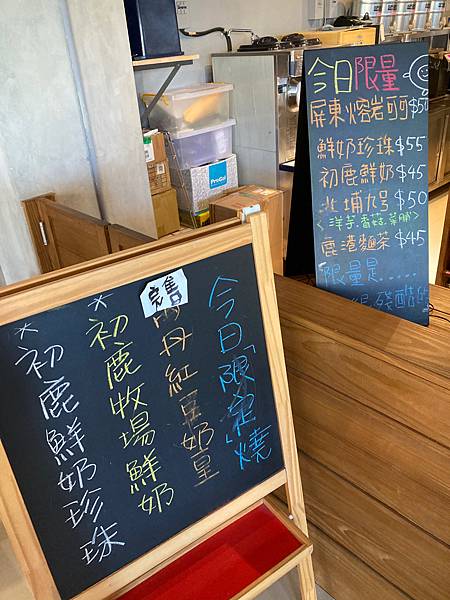 今日限量
屏東熔岩可可$50
鮮奶珍珠$55
初鹿鮮奶$45
北埔九号$50
<洋芋.香菇.菜脯>
鹿港麵茶$45
限量是.....
殘酷的
今日「限定」燒
售完
丹紅豆奶皇
*初鹿牧場鮮奶
*初鹿鮮奶珍珠
ProGo